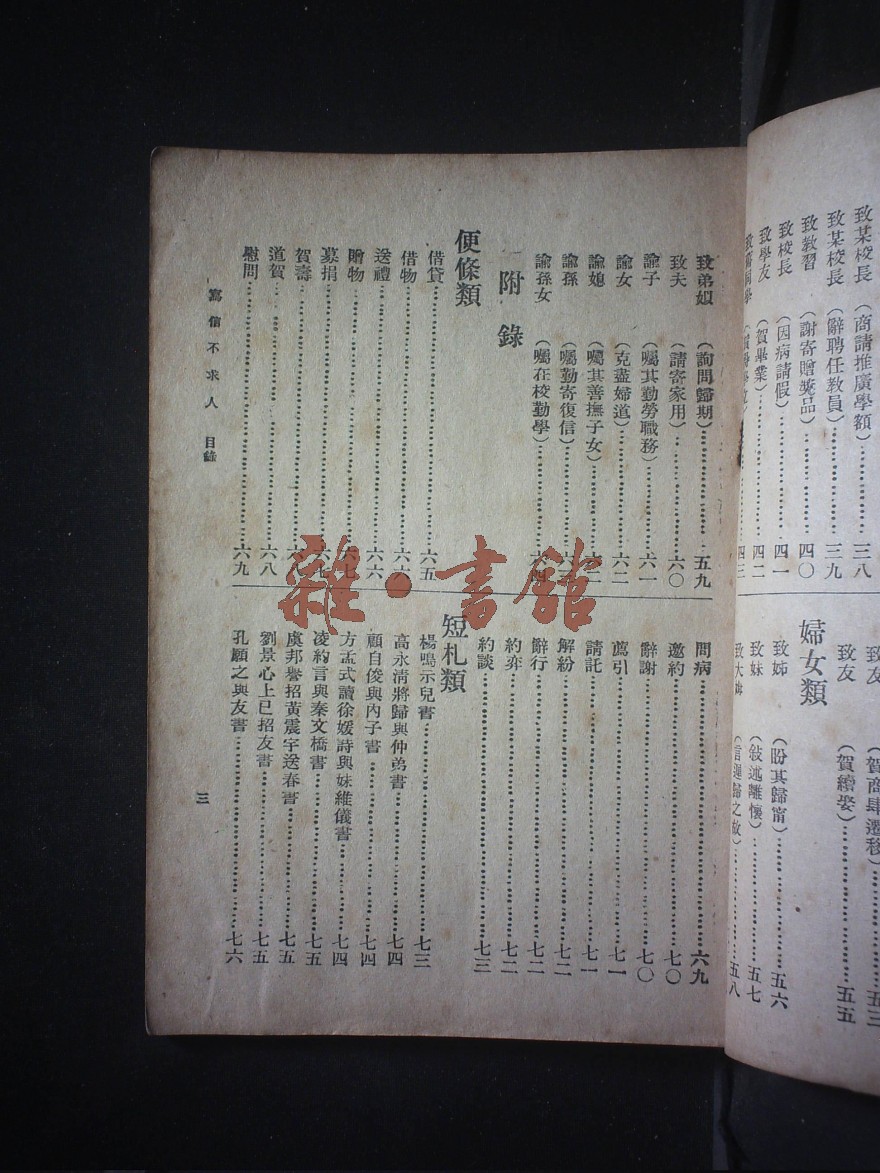 致某校長（商請推廣學額）三八
致某校長（辭聘任教員）三九
致教習（謝寄贈獎品）四〇
致校長（因病請假）四一
致學友（賀畢業）四二
四三
致友
致友（賀商肆遷移）五三
（賀續娶）五五
婦女類
致姊（盼其歸甯）五六
致妹（敍述離懷）五七
致大嫂（言遲歸之故）五八
致弟媳（詢問歸期）五九
致夫（請寄家用）六〇
諭子（囑其勤勞職務）六一
諭女（克盡婦道）六二
諭媳（囑其善撫子女）
諭孫（囑勤寄復信）
諭孫女（囑在校勤學）
附錄
便條類
借貸六五
借物六六
送禮六六
贈物六七
募捐六七
賀壽
道賀六八
慰問六九
問病六九
邀約七〇
辭謝七〇
薦引七一
請託七一
解紛七二
辭行七二
約弈七二
約談七三
短札類
楊鳴示兒書七三
高永清將歸與仲弟書七四
顧自俊與內子書七四
方孟式讀徐媛詩與妹維儀書七四
凌約言與秦文橋書七五
虞邦譽招黃震宇送春書七五
劉景心上巳招友書七五
孔願之與友書七六
寫信不求人 目錄
三
雜·書館